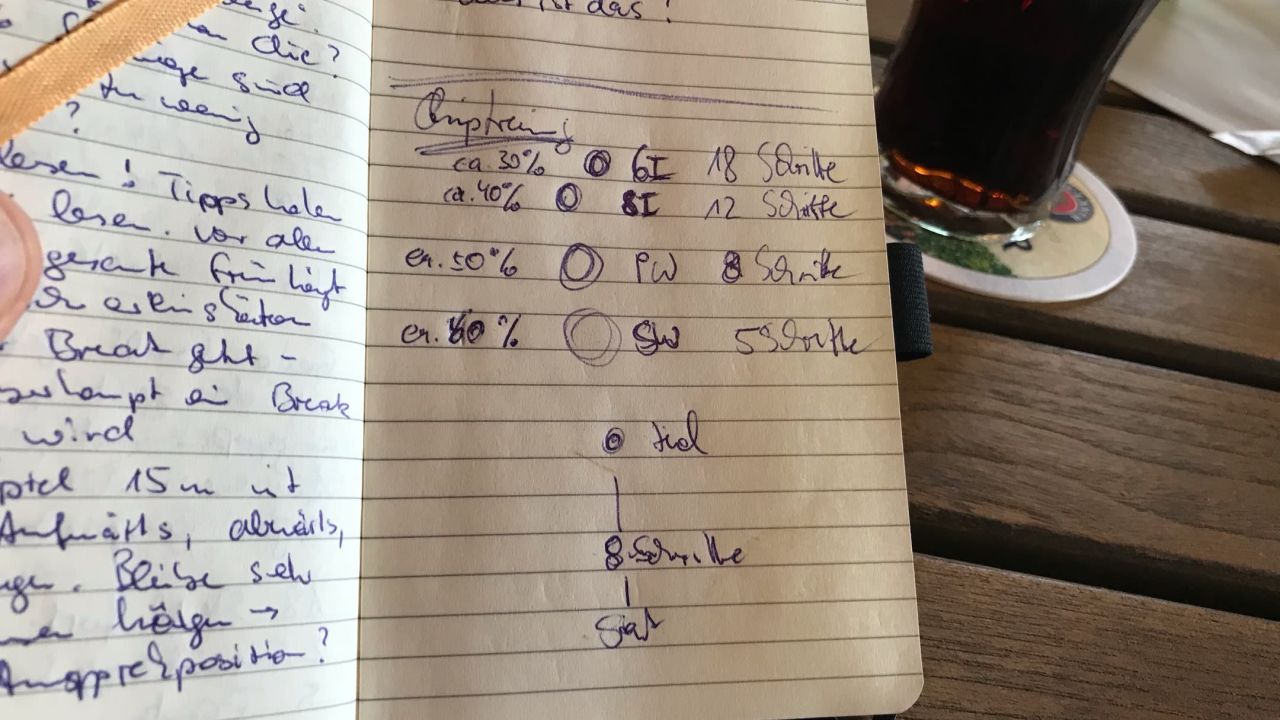 die?
sind
zu wenig
?
lesen! Tipps holen
lesen. Vor allem
gesamte Grün liegt
Break geht -
ein Break
wird
15m ist
Aufwärts, abwärts,
Bleibe sehr
hängen →
Ansprechposition?
ist das!
Chiptraining
ca. 30% 6I 18 Schritte
ca. 40% 8I 12 Schritte
ca. 50% PW 8 Schritte
ca. 60% SW 5 Schritte
Ziel
8 Schritte
Start